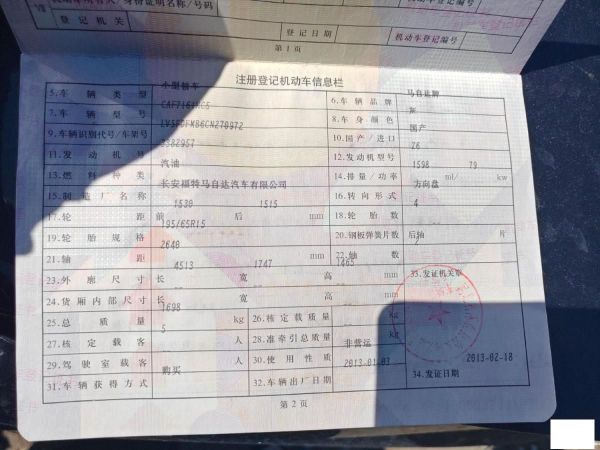 登记机关
登记日期
机动车登记编号
第1页
注册登记机动车信息栏
5.车辆类型 小型轿车 6.车辆品牌 马自达牌
7.车辆型号 8.车身颜色 灰
9.车辆识别代号/车架号 10.国产/进口 国产
11.发动机号 12.发动机型号 Z6
13.燃料种类 汽油 14.排量/功率 1598 ml/ 79 kw
15.制造厂名称 长安福特马自达汽车有限公司 16.转向形式 方向盘
17.轮距 前 1530 后 1515 mm 18.轮胎数 4
19.轮胎规格 195/65R15 20.钢板弹簧片数 后轴 片
21.轴距 2640 mm 22.轴数 2
23.外廓尺寸 长 4513 宽 1747 高 1465 mm 33.发证机关章
24.货厢内部尺寸 长 宽 高 mm
25.总质量 1698 kg 26.核定载质量 kg
27.核定载客 5 人 28.准牵引总质量 kg
29.驾驶室载客 人 30.使用性质 非营运
31.车辆获得方式 购买 32.车辆出厂日期 2013-01-03 34.发证日期 2013-02-18
第2页